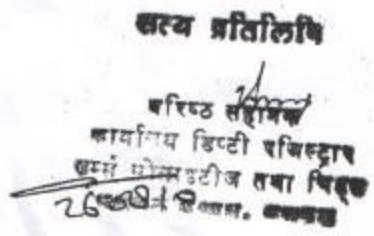 सत्य प्रतिलिपि
वरिष्ठ सहायक
कार्यालय डिप्टी रजिस्ट्रार
फर्म्स सोसाइटीज तथा चिट्स